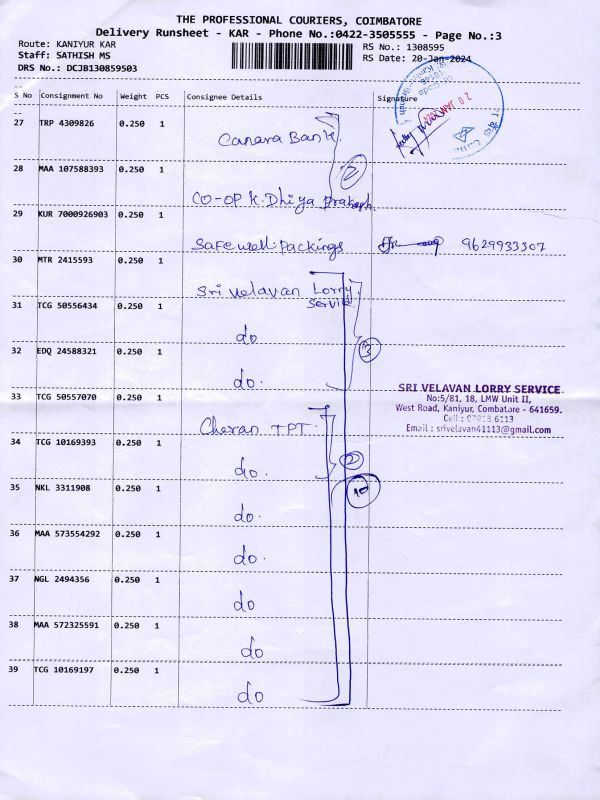 THE PROFESSIONAL COURIERS, COIMBATORE
Delivery Runsheet - KAR - Phone No.:0422-3505555 - Page No.:3
Route: KANIYUR KAR
RS No.: 1308595
Staff: SATHISH MS
RS Date: 20-Jan-2024
DRS No.: DCJB130859503
S No Consignment No Weight PCS Consignee Details Signature
20 JAN
27 TRP 4309826 0.250 1 Canara Bank
2
28 MAA 107588393 0.250 1 CO-OP K. Dhiya Prakash
29 KUR 7000926903 0.250 1 Safewell packings 9629933307
30 MTR 2415593 0.250 1 Sri velavan Lorry
Service
31 TCG 50556434 0.250 1 do
3
32 EDQ 24588321 0.250 1 do.
SRI VELAVAN LORRY SERVICE
No:5/81, 18, LMW Unit II,
West Road, Kaniyur, Combatore - 641659.
Cell : 6113
Email : srivelavan41113@gmail.com
33 TCG 50557070 0.250 1 Cheran TPT.
34 TCG 10169393 0.250 1 do.
2
35 NKL 3311908 0.250 1 do.
10
36 MAA 573554292 0.250 1 do.
37 NGL 2494356 0.250 1 do
38 MAA 572325591 0.250 1 do
39 TCG 10169197 0.250 1 do